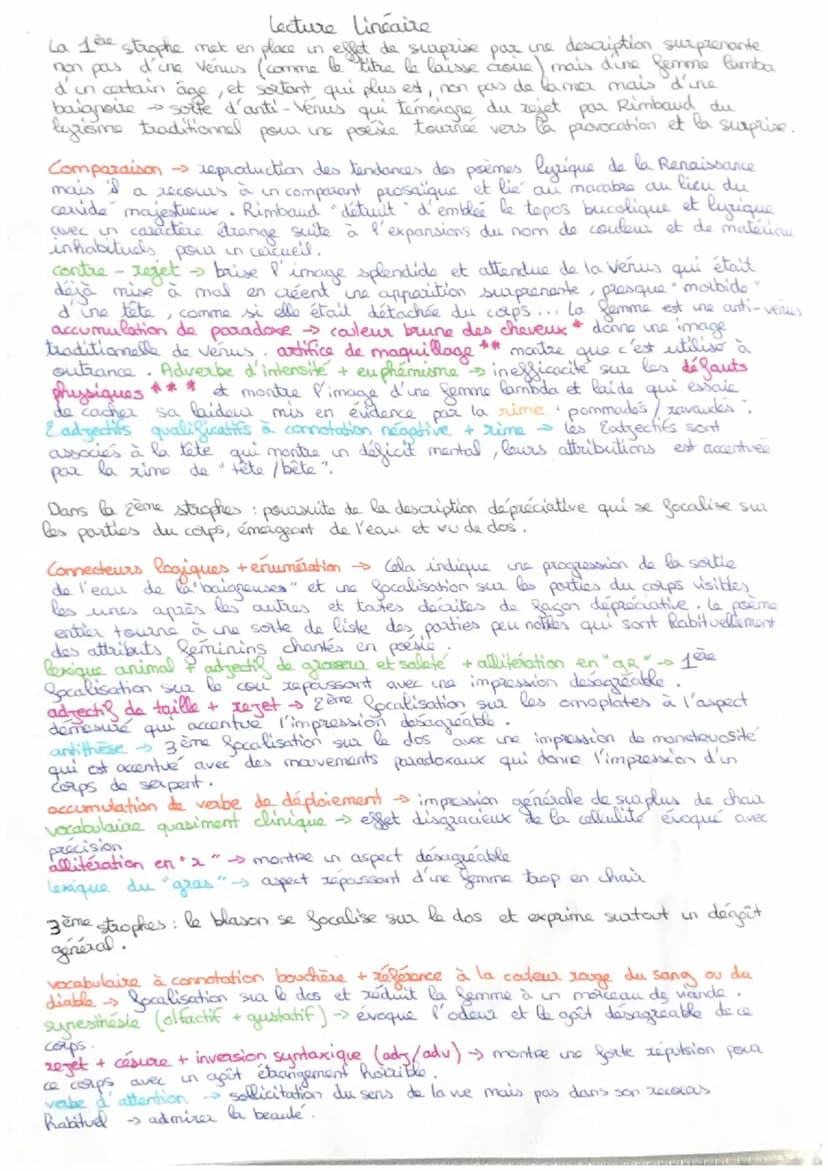 Lecture Linéaire
La 1ère strophe met en place un effet de surprise par une description surprenante
non pas d'une Vénus (comme le titre le laisse croire) mais d'une femme lamba
d'un certain âge, et sortant qui plus est, non pas de la mer mais d'une
baignoire → sorte d'anti-Vénus qui témoigne du rejet par Rimbaud du
lyrisme traditionnel pour une poésie tournée vers la provocation et la surprise.
Comparaison → reproduction des tendances des poèmes lyrique de la Renaissance
mais il a recours à un comparant prosaïque et lié au macabre au lieu du
majestueux. Rimbaud "détruit" d'emblée le topos bucolique et lyrique
avec un caractère étrange suite à l'expansions du nom de couleur et de matériau
inhabituels pour un cercueil.
contre-rejet → brise l'image splendide et attendue de la Vénus qui était
déjà mise à mal en créent une apparition surprenante, presque "morbide"
d'une tête, comme si elle était détachée du corps... La femme est une anti-vénus
accumulation de paradoxe → couleur brune des cheveux * donne une image
traditionnelle de vénus. artifice de maquillage ** montre que c'est utilisé à
outrance. Adverbe d'intensité + euphémisme → inefficacité sur les défauts
physiques *** et montre l'image d'une femme lambda et laide qui essaie
de cacher sa laideur mis en évidence par la rime "pommadés / ravaudés".
2 adjectifs qualificatifs à connotation négative + rime → les 2 adjectifs sont
associés à la tête qui montre un déficit mental, leurs attributions est accentuée
par la rime de "tête / bête".
Dans la 2ème strophes : poursuite de la description dépréciative qui se focalise sur
les parties du corps, émergeant de l'eau et vu de dos.
Connecteurs logiques + énumération → Cela indique une progression de la sortie
de l'eau de la "baigneuses" et une focalisation sur les parties du corps visibles
les unes après les autres et toutes décrites de façon dépréciative. Le poème
entier tourne à une sorte de liste des parties peu nobles qui sont habituellement
des attributs féminins chantés en poésie.
lexique animal + adjectif de grosseur et saleté + allitération en "gR" → 1ère
focalisation sur le cou repoussant avec une impression désagréable.
adjectif de taille + rejet → 2ème focalisation sur les omoplates à l'aspect
démesuré qui accentue l'impression désagréable.
antithèse → 3ème focalisation sur le dos avec une impression de monstruosité
qui est accentué avec des mouvements paradoxaux qui donne l'impression d'un
corps de serpent.
accumulation de verbe de déploiement → impression générale de surplus de chair
vocabulaire quasiment clinique → effet disgracieux de la cellulité évoqué avec
précision
allitération en "r" → montre un aspect désagréable
lexique du "gras" → aspect repoussant d'une femme trop en chair
3ème strophes : le blason se focalise sur le dos et exprime surtout un dégoût
général.
vocabulaire à connotation bouchère + référence à la couleur rouge du sang ou du
diable → focalisation sur le dos et réduit la femme à un morceau de viande.
synesthésie (olfactif + gustatif) → évoque l'odeur et le goût désagréable de ce
corps.
rejet + césure + inversion syntaxique (adj/adv) → montre une forte répulsion pour
ce corps avec un goût étrangement horrible.
verbe d'attention → sollicitation du sens de la vue mais pas dans son recours
habituel → admirer la beauté.